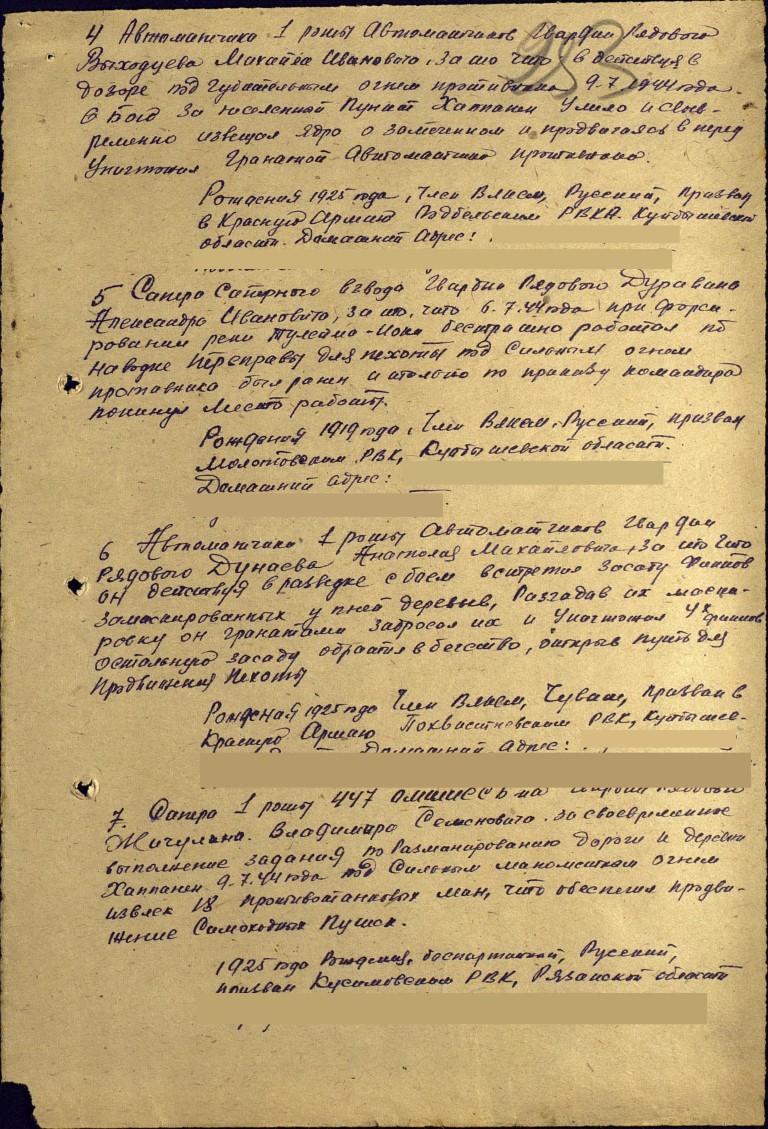 4 Автоматчика 1 роты Автоматчиков Гвардии Рядового
Выходцева Михаила Ивановича, за то что в действуя в
дозоре под губительным огнем противника 9.7.1944 года.
В Бою За населенной Пункт Хаппанен Умело и свое-
ременно извещал Ядро о замеченном и продвигаясь в перед
Уничтожил Гранатой Автоматчика противника.
Рождения 1925 года, Член Влксм, Русский, призван
в Красную Армию Подбельским РВКА Куйбышевской
области. Домашний Адрес:
5 Сапера Саперного взвода Гвардии Рядового Дуравина
Александра Ивановича, за то, что 6.7.44 года при форси-
ровании реки Тулема-Иоки бесстрашно работал по
наводке переправы для пехоты под Сильным огнем
противника был ранен и только по приказу командира
покинул Место работы.
Рождения 1919 года, Член Влксм, Русский, призван
Молотовским РВК, Куйбышевской области.
Домашний адрес:
6 Автоматчика 1 роты Автоматчиков Гвардии
Рядового Дунаева Анатолия Михайловича, за то что
он действуя в разведке с боем встретил засаду Финнов
замаскированных у пней деревьев, Разгадав их маски-
ровку он гранатами забросал их и Уничтожил 4х финнов
остальную засаду обратил в бегство, открыв путь для
Продвижения Пехоты
Рождения 1925 года Член Влксм, Чуваш, призван в
Красную Армию Похвистневским РВК, Куйбышев-
Домашний адрес:
7. Сапера 1 роты 447 Гвардии Рядового
Жичулина Владимира Семеновича за своевременное
выполнение задания по Разминированию дороги и деревни
Хаппанен 9.7.44 года под Сильным минометным огнем
извлек 18 противотанковых мин, что обеспечил продви-
жение Самоходных Пушек.
1925 года Рождения, беспартийный, Русский,
призван Кусимовским РВК, Рязанской области